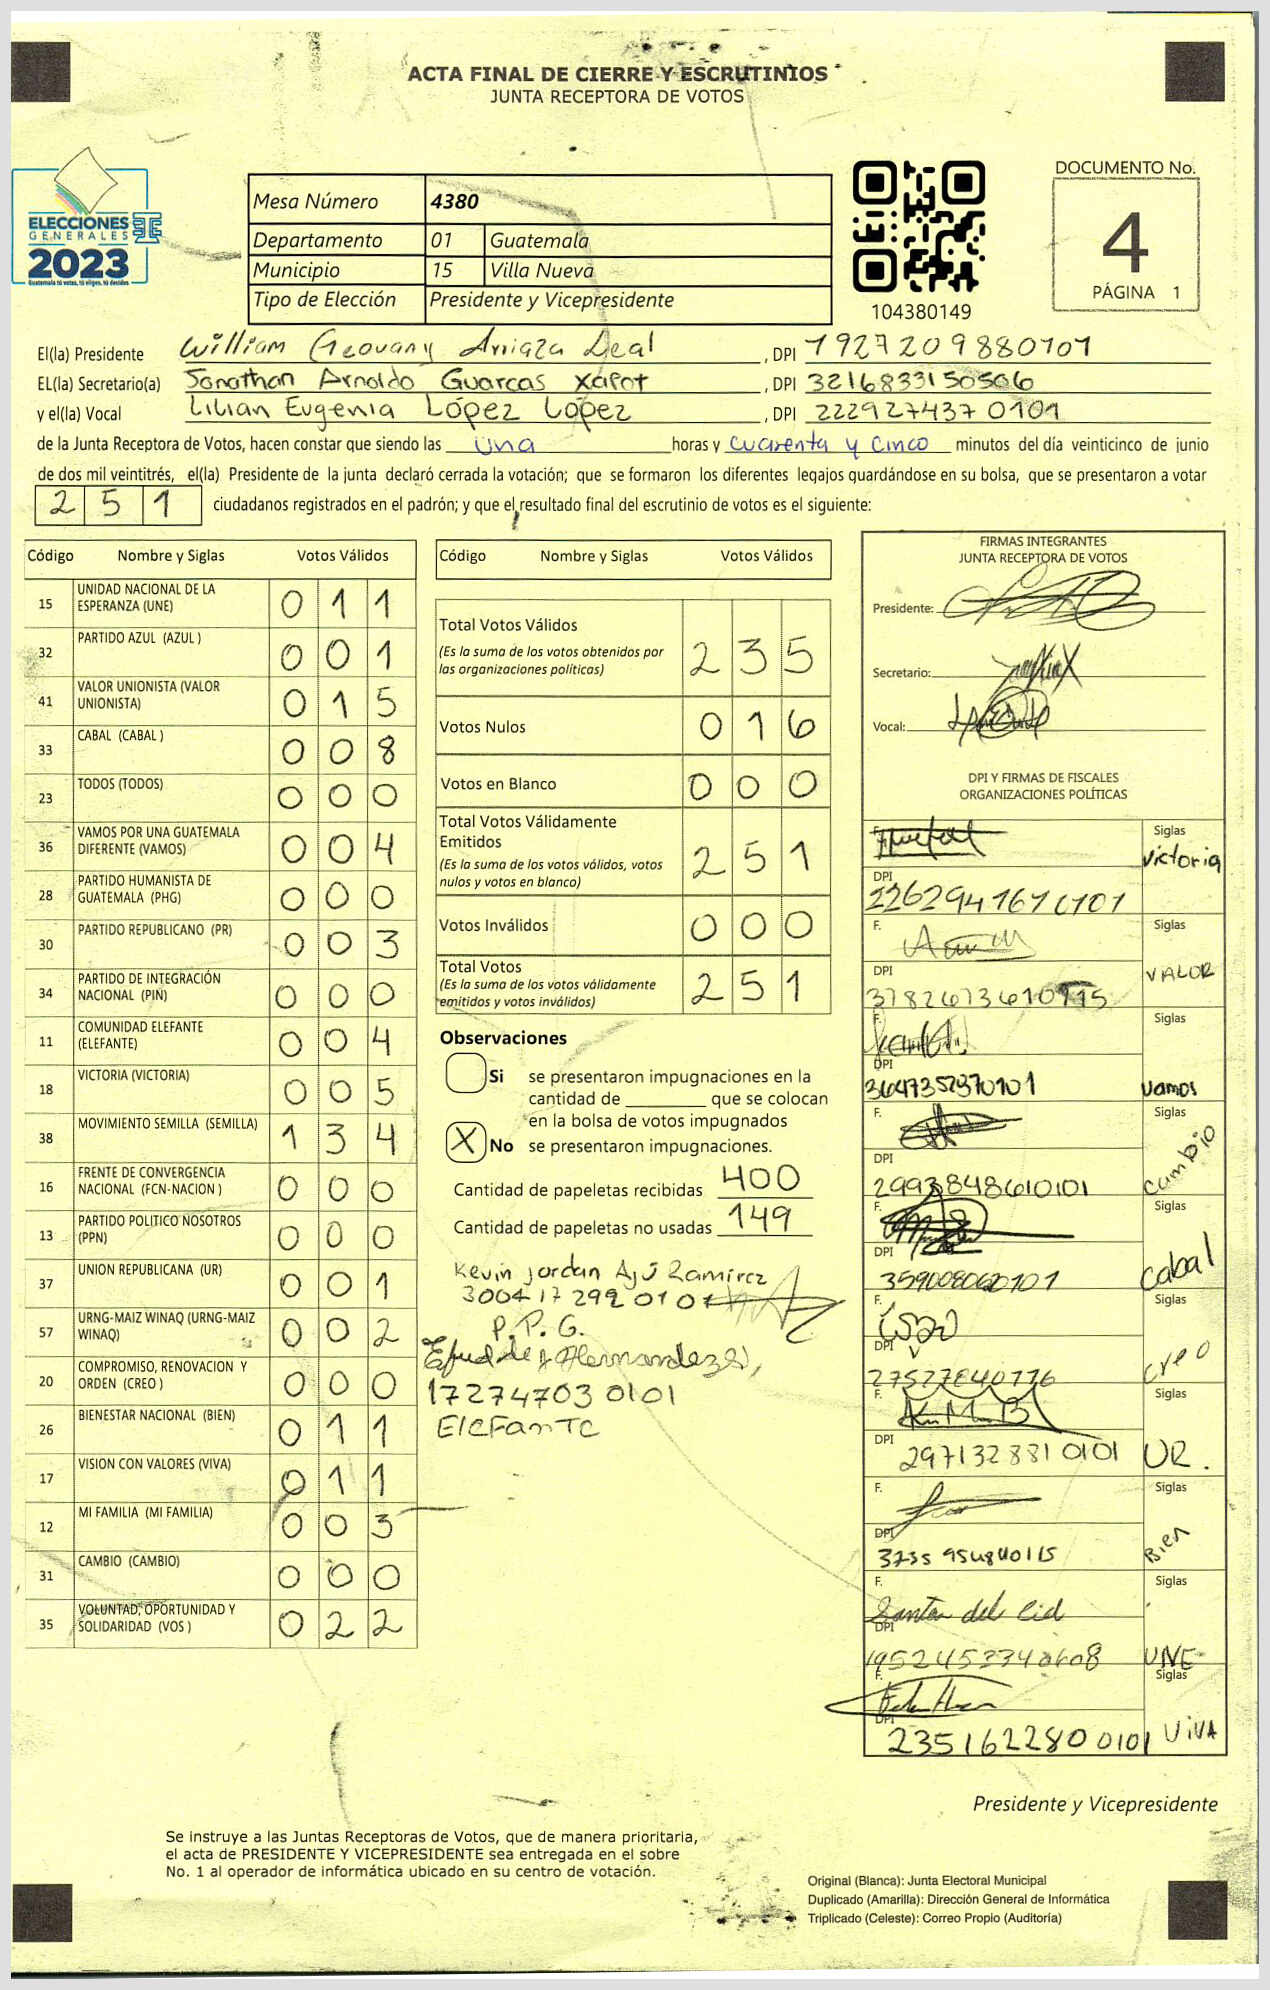 ACTA FINAL DE CIERRE Y ESCRUTINIOS
JUNTA RECEPTORA DE VOTOS
DOCUMENTO No.
4
PÁGINA 1
ELECCIONES
GENERALES
2023
Guatemala tú votas, tú eliges, tú decides
Mesa Número 4380
Departamento 01 Guatemala
Municipio 15 Villa Nueva
Tipo de Elección Presidente y Vicepresidente
104380149
El(la) Presidente William Geovany Arriaza Leal, DPI 1927209880101
EL(la) Secretario(a) Jonathan Arnoldo Guarcas Xapot, DPI 3216833150506
y el(la) Vocal Lilian Eugenia López López, DPI 2229274370101
de la Junta Receptora de Votos, hacen constar que siendo las una horas y cuarenta y cinco minutos del día veinticinco de junio
de dos mil veintitrés, el(la) Presidente de la junta declaró cerrada la votación; que se formaron los diferentes legajos guardándose en su bolsa, que se presentaron a votar
251 ciudadanos registrados en el padrón; y que el resultado final del escrutinio de votos es el siguiente:
Código Nombre y Siglas Votos Válidos
15 UNIDAD NACIONAL DE LA ESPERANZA (UNE) 011
32 PARTIDO AZUL (AZUL ) 001
41 VALOR UNIONISTA (VALOR UNIONISTA) 015
33 CABAL (CABAL ) 008
23 TODOS (TODOS) 000
36 VAMOS POR UNA GUATEMALA DIFERENTE (VAMOS) 004
28 PARTIDO HUMANISTA DE GUATEMALA (PHG) 000
30 PARTIDO REPUBLICANO (PR) 003
34 PARTIDO DE INTEGRACIÓN NACIONAL (PIN) 000
11 COMUNIDAD ELEFANTE (ELEFANTE) 004
18 VICTORIA (VICTORIA) 005
38 MOVIMIENTO SEMILLA (SEMILLA) 134
16 FRENTE DE CONVERGENCIA NACIONAL (FCN-NACION ) 000
13 PARTIDO POLITICO NOSOTROS (PPN) 000
37 UNION REPUBLICANA (UR) 001
57 URNG-MAIZ WINAQ (URNG-MAIZ WINAQ) 002
20 COMPROMISO, RENOVACION Y ORDEN (CREO ) 000
26 BIENESTAR NACIONAL (BIEN) 011
17 VISION CON VALORES (VIVA) 011
12 MI FAMILIA (MI FAMILIA) 003
31 CAMBIO (CAMBIO) 000
35 VOLUNTAD, OPORTUNIDAD Y SOLIDARIDAD (VOS ) 022
Código Nombre y Siglas Votos Válidos
Total Votos Válidos 235
(Es la suma de los votos obtenidos por
las organizaciones políticas)
Votos Nulos 016
Votos en Blanco 000
Total Votos Válidamente
Emitidos 251
(Es la suma de los votos válidos, votos
nulos y votos en blanco)
Votos Inválidos 000
Total Votos 251
(Es la suma de los votos válidamente
emitidos y votos inválidos)
Observaciones
Si se presentaron impugnaciones en la
cantidad de ________ que se colocan
en la bolsa de votos impugnados
X No se presentaron impugnaciones.
Cantidad de papeletas recibidas 400
Cantidad de papeletas no usadas 149
Kevin Jordan Ajú Ramirez
3004172920101
P.P.G.
Hernandez
172747030101
ElEFanTE
FIRMAS INTEGRANTES
JUNTA RECEPTORA DE VOTOS
Presidente:
Secretario:
Vocal:
DPI Y FIRMAS DE FISCALES
ORGANIZACIONES POLÍTICAS
F. Siglas victoria
DPI
F. Siglas VALOR
DPI
F. Siglas vamos
DPI 3647352370101
F. Siglas cambio
DPI 2993848610101
F. Siglas cabal
DPI
F. Siglas creo
DPI
F. Siglas UR.
DPI 2971328810101
F. Siglas Bien
DPI
F. Santos del Cid Siglas UNE
DPI
F. Siglas VIVA
DPI 2351622800101
Presidente y Vicepresidente
Se instruye a las Juntas Receptoras de Votos, que de manera prioritaria,
el acta de PRESIDENTE Y VICEPRESIDENTE sea entregada en el sobre
No. 1 al operador de informática ubicado en su centro de votación.
Original (Blanca): Junta Electoral Municipal
Duplicado (Amarilla): Dirección General de Informática
Triplicado (Celeste): Correo Propio (Auditoría)